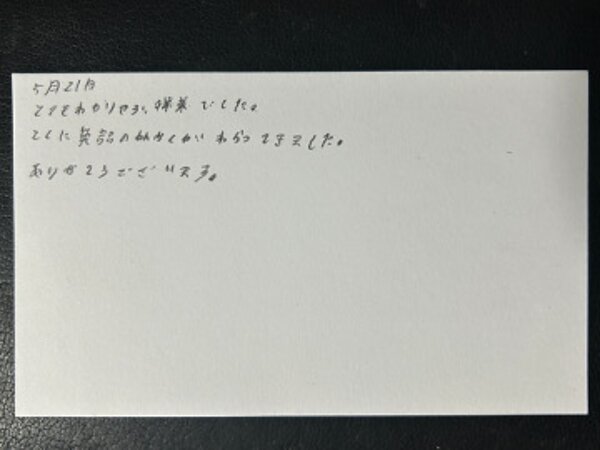 5月21日
とてもわかりやすい授業でした。
とくに英語の仕組がわかってきました。
ありがとうございます。